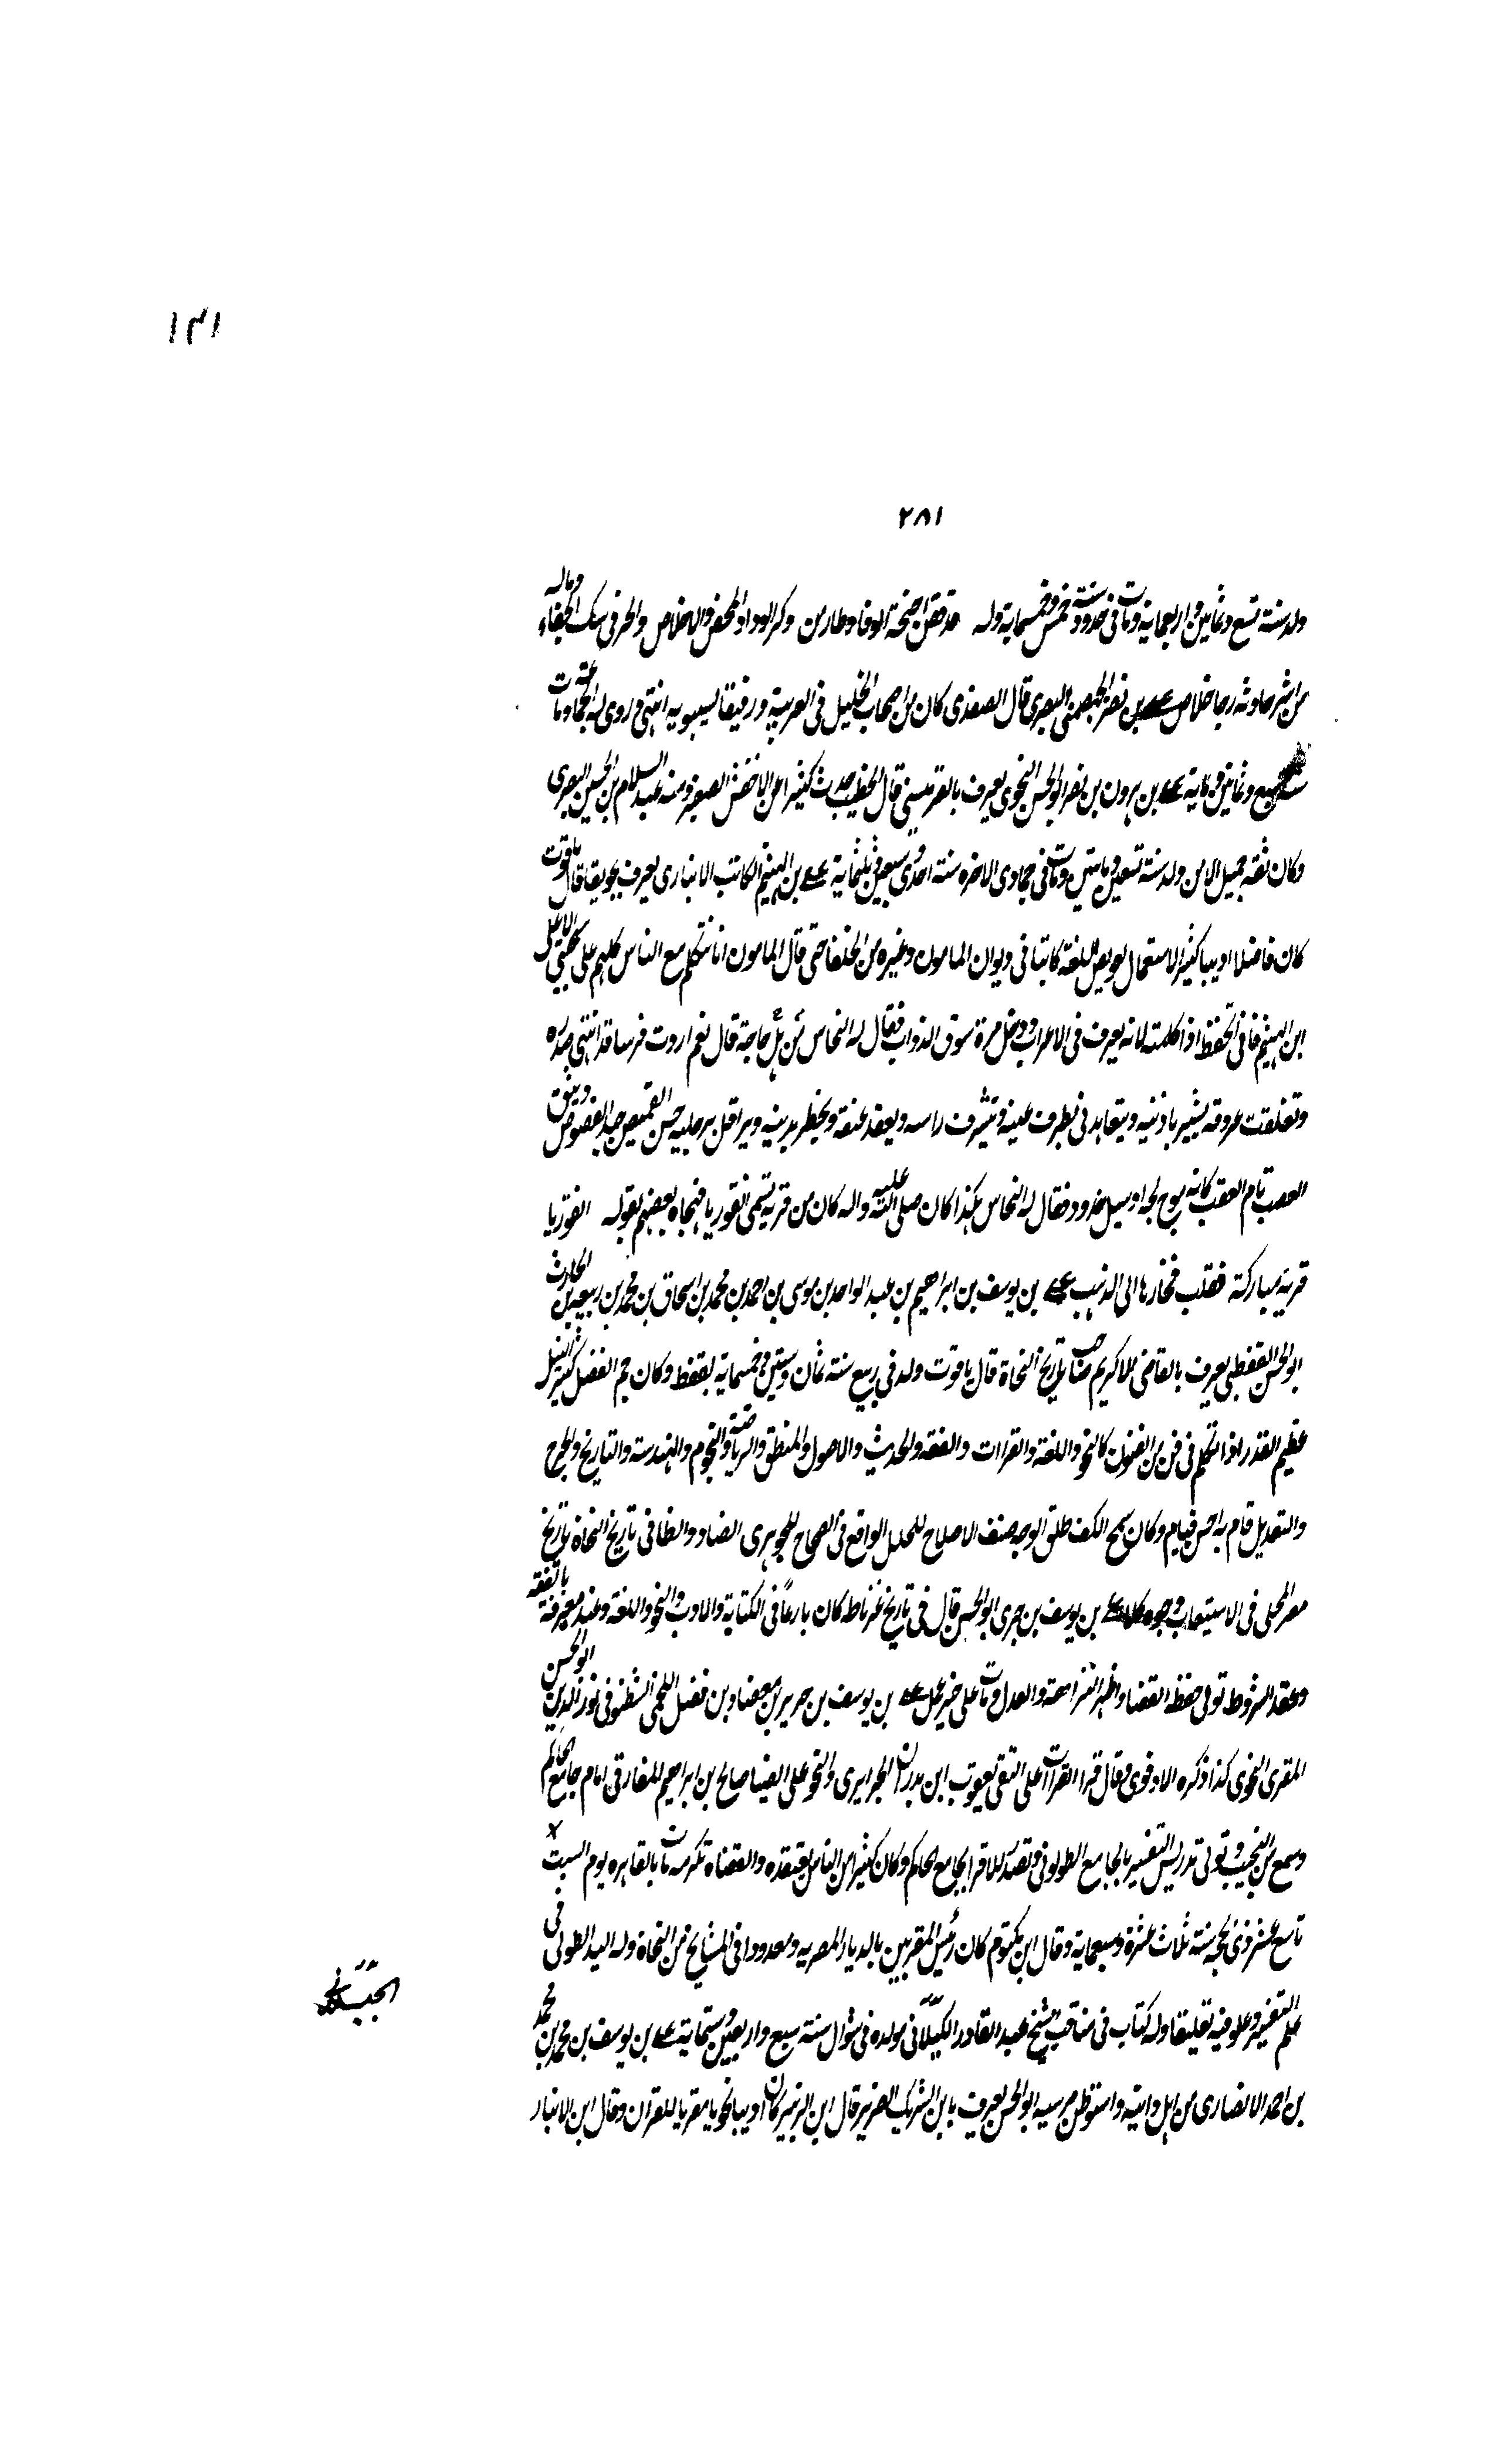 ١٣١
٢٨١
ولد سنة تسع وثمانين واربعماية ومات فى حدود سنة خمس وخمسماية وله قد قص اجنحة الوفا وطار من وكر الوداد المحض والاخلاص والحر فى شبك الجفاء وماله
من اسر حادثه رجا خلاص على بن نصر الجهضمى البصرى قال الصفدى كان من اصحاب الخليل فى العربية ورفيقا لسيبويه انتهى وروى له الجماعة ومات
سنة سبع وثمانين وماية على بن هرون بن نصر ابو الحسن النحوى يعرف بالقرميسينى قال الخطيب حدث كثيرا عن الاخفش الصغير ومنه عبد السلام بن الحسين البصرى
وكان ثقة جميل الامر ولد سنة تسعين ومايتين ومات فى جمادى الاخره سنة احدى وسبعين وثلثماية على بن الهيثم الكاتب الانبارى يعرف بجونقا قال ياقوت
كان فاضلا اديبا كثير الاستعمال لعويص اللغة كاتبا فى ديوان المامون وغيره من الخلفا حتى قال المامون انا نتكلم مع الناس كلهم على سجيتى الا على
ابن الهيثم فانى اتحفظ اذا كلمته لانه يعرف فى الاعراب ودخل مرة سوق الدواب فقال له النخاس من هل حاجة قال نعم اردت فرسا قد انتهى صدره
وتقلقت عروقه يشير باذنيه ويتعاهدنى بطرف عينه وتشرف راسه ويعقد عنقه ويخطر بذنبه ويراقل برجليه حسن القميص جيد الفصوص وثيق
العصب تام العقب كانه موج لجه او سيل خدود فقال له النخاس هكذا كان صلى الله عليه واله كان من قرية تسمى انقوريا فهجاه بعضهم بقوله انقوريا
قرية مباركة فقلب فخارها الى الذهب على بن يوسف بن ابراهيم بن عبد الواحد بن موسى بن احمد بن محمد بن اسحاق بن محمد بن ربيعة بن الحارث
ابو الحسن القفطى يعرف بالقاضى الاكرم صاحب تاريخ النحاة قال ياقوت ولد فى ربيع سنة ثمان وستين وخمسماية بقفط وكان جم الفضل كثير النبل
عظيم القدر اذا تكلم فى فن من الفنون كالنحو واللغة والقرات والفقه والحديث والاصول والمنطق والرياضة والنجوم والهندسة والتاريخ والجرح
والتعديل قام به احسن قيام وكان سمح الكف طلق الوجه صنف الاصلاح للخلل الواقع فى الصحاح للجوهرى الضاد والظا فى تاريخ النحاة تاريخ
مصر المحلى فى الاستيعاب وجوه كلا على بن يوسف بن جزى ابو الحسن قال فى تاريخ غرناطه كان بارعا فى الكتابة والادب والنحو واللغة وعنده معرفة بالفقه
وعقد الشروط تولى حفظ القضا واظهر النزاهة والعدل ومات على خير عمل على بن يوسف بن حرير بن معضاد بن فضل اللخمى الشطنوفى نور الدين ابو الحسن
المقرى النحوى كذا ذكره الادفوى وقال قرا القرات على التقى يعقوب ابن بدران الجرايدى والنحو على الضيا صالح بن ابراهيم الفارقى امام جامع الحاكم
وسمع من النجيب وتولى تدريس التفسير بالجامع الطولونى وتصدر للاقرا بجامع الحاكم وكان كثير من الناس يعتقده والقضاة تكرمه مات بالقاهره يوم السبت
تاسع عشر ذى الحجة سنة ثلاث عشرة وسبعماية وقال ابن مكتوم كان رئيس المقريين بالديار المصريه ومعدودا فى المشايخ من النحاة وله اليد الطولى فى
علم التفسير وعلق فيه تعليقا وله كتاب فى مناقب الشيخ عبد القادر الكيلانى مولده فى شوال سنة سبع واربعين وستماية على بن يوسف بن محمد بن محمد
بن احمد الانصارى من اهل دانية واستوطن مرسيه ابو الحسن يعرف بابن الشريك الضرير قال ابن الزبير كان اديبا نحويا مقريا للقران وقال ابن الابار
الجيلانى